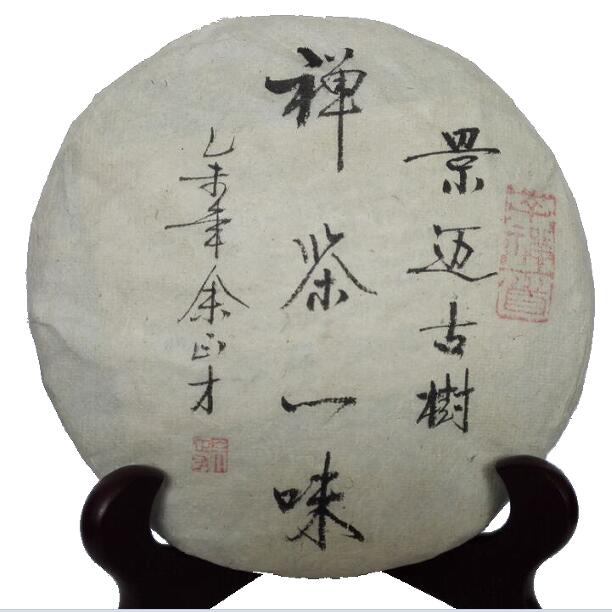 景迈古樹
禅茶一味
乙未年余正才